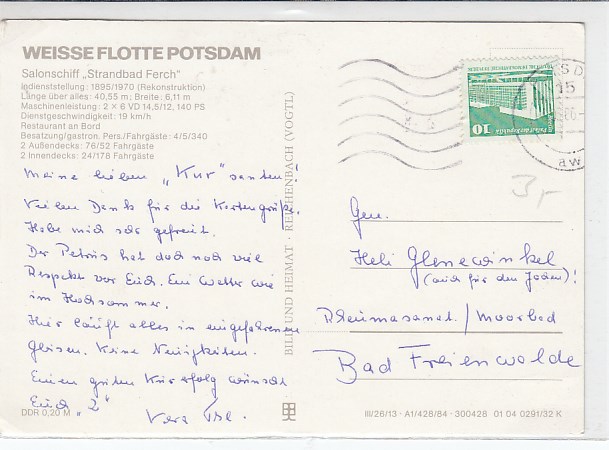 WEISSE FLOTTE POTSDAM
Salonschiff „Strandbad Ferch"
Indienststellung: 1895/1970 (Rekonstruktion)
Länge über alles: 40,55 m; Breite: 6,11 m
Maschinenleistung: 2 X 6 VD 14,5/12, 140 PS
Dienstgeschwindigkeit: 19 km/h
Restaurant an Bord
Besatzung/gastron. Pers./Fahrgäste: 4/5/340
2 Außendecks: 76/52 Fahrgäste
2 Innendecks: 24/178 Fahrgäste
Meine lieben „Kur"santen!
Vielen Dank für die Kartengrüße.
Habe mich sehr gefreut.
Der Petrus hat doch noch viel
Respekt vor Euch. Ein Wetter wie
im Hochsommer.
Hier läuft alles in eingefahrenen
Gleisen. Keine Neuigkeiten.
Einen guten Kurerfolg wünscht
Euch
Vera
DDR 0,20 M
BILD UND HEIMAT · REICHENBACH (VOGTL)
10
3,-
Gen.
Heli Glenewinkel
(auch für den Jochen)!
Rheumasanat./Moorbad
Bad Freienwalde
III/26/13 · A1/428/84 · 300428 01 04 0291/32 K